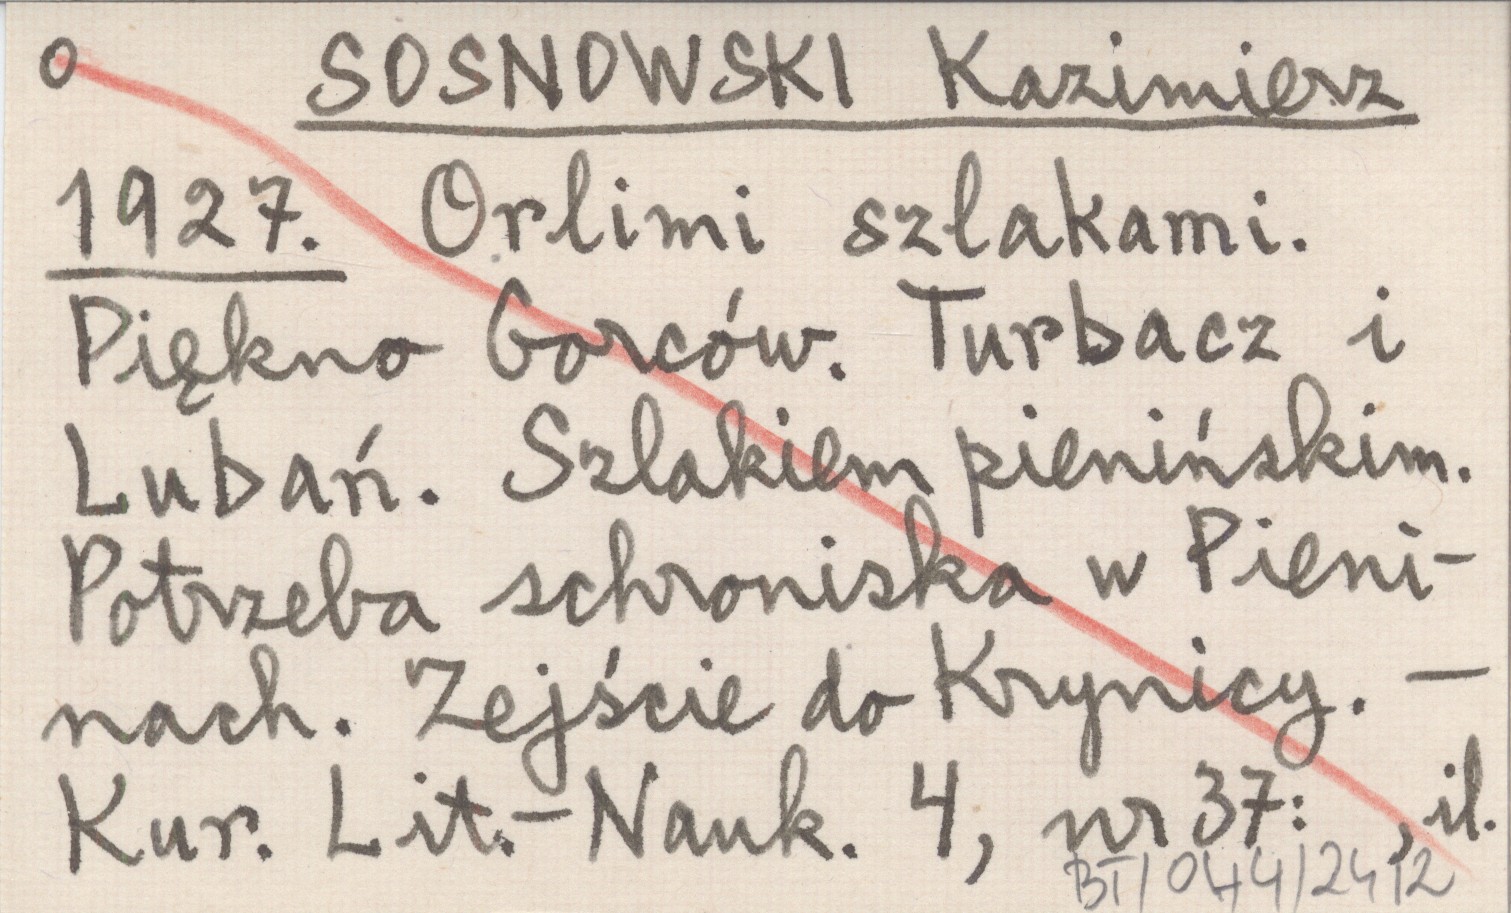 o SOSNOWSKI Kazimierz
1927. Orlimi szlakami.
Piękno Gorców. Turbacz i
Lubań. Szlakiem pienińskim.
Potrzeba schroniska w Pieni-
nach. Zejście do Krynicy. —
Kur. Lit.-Nauk. 4, nr 37: , il.
BT/044/2412